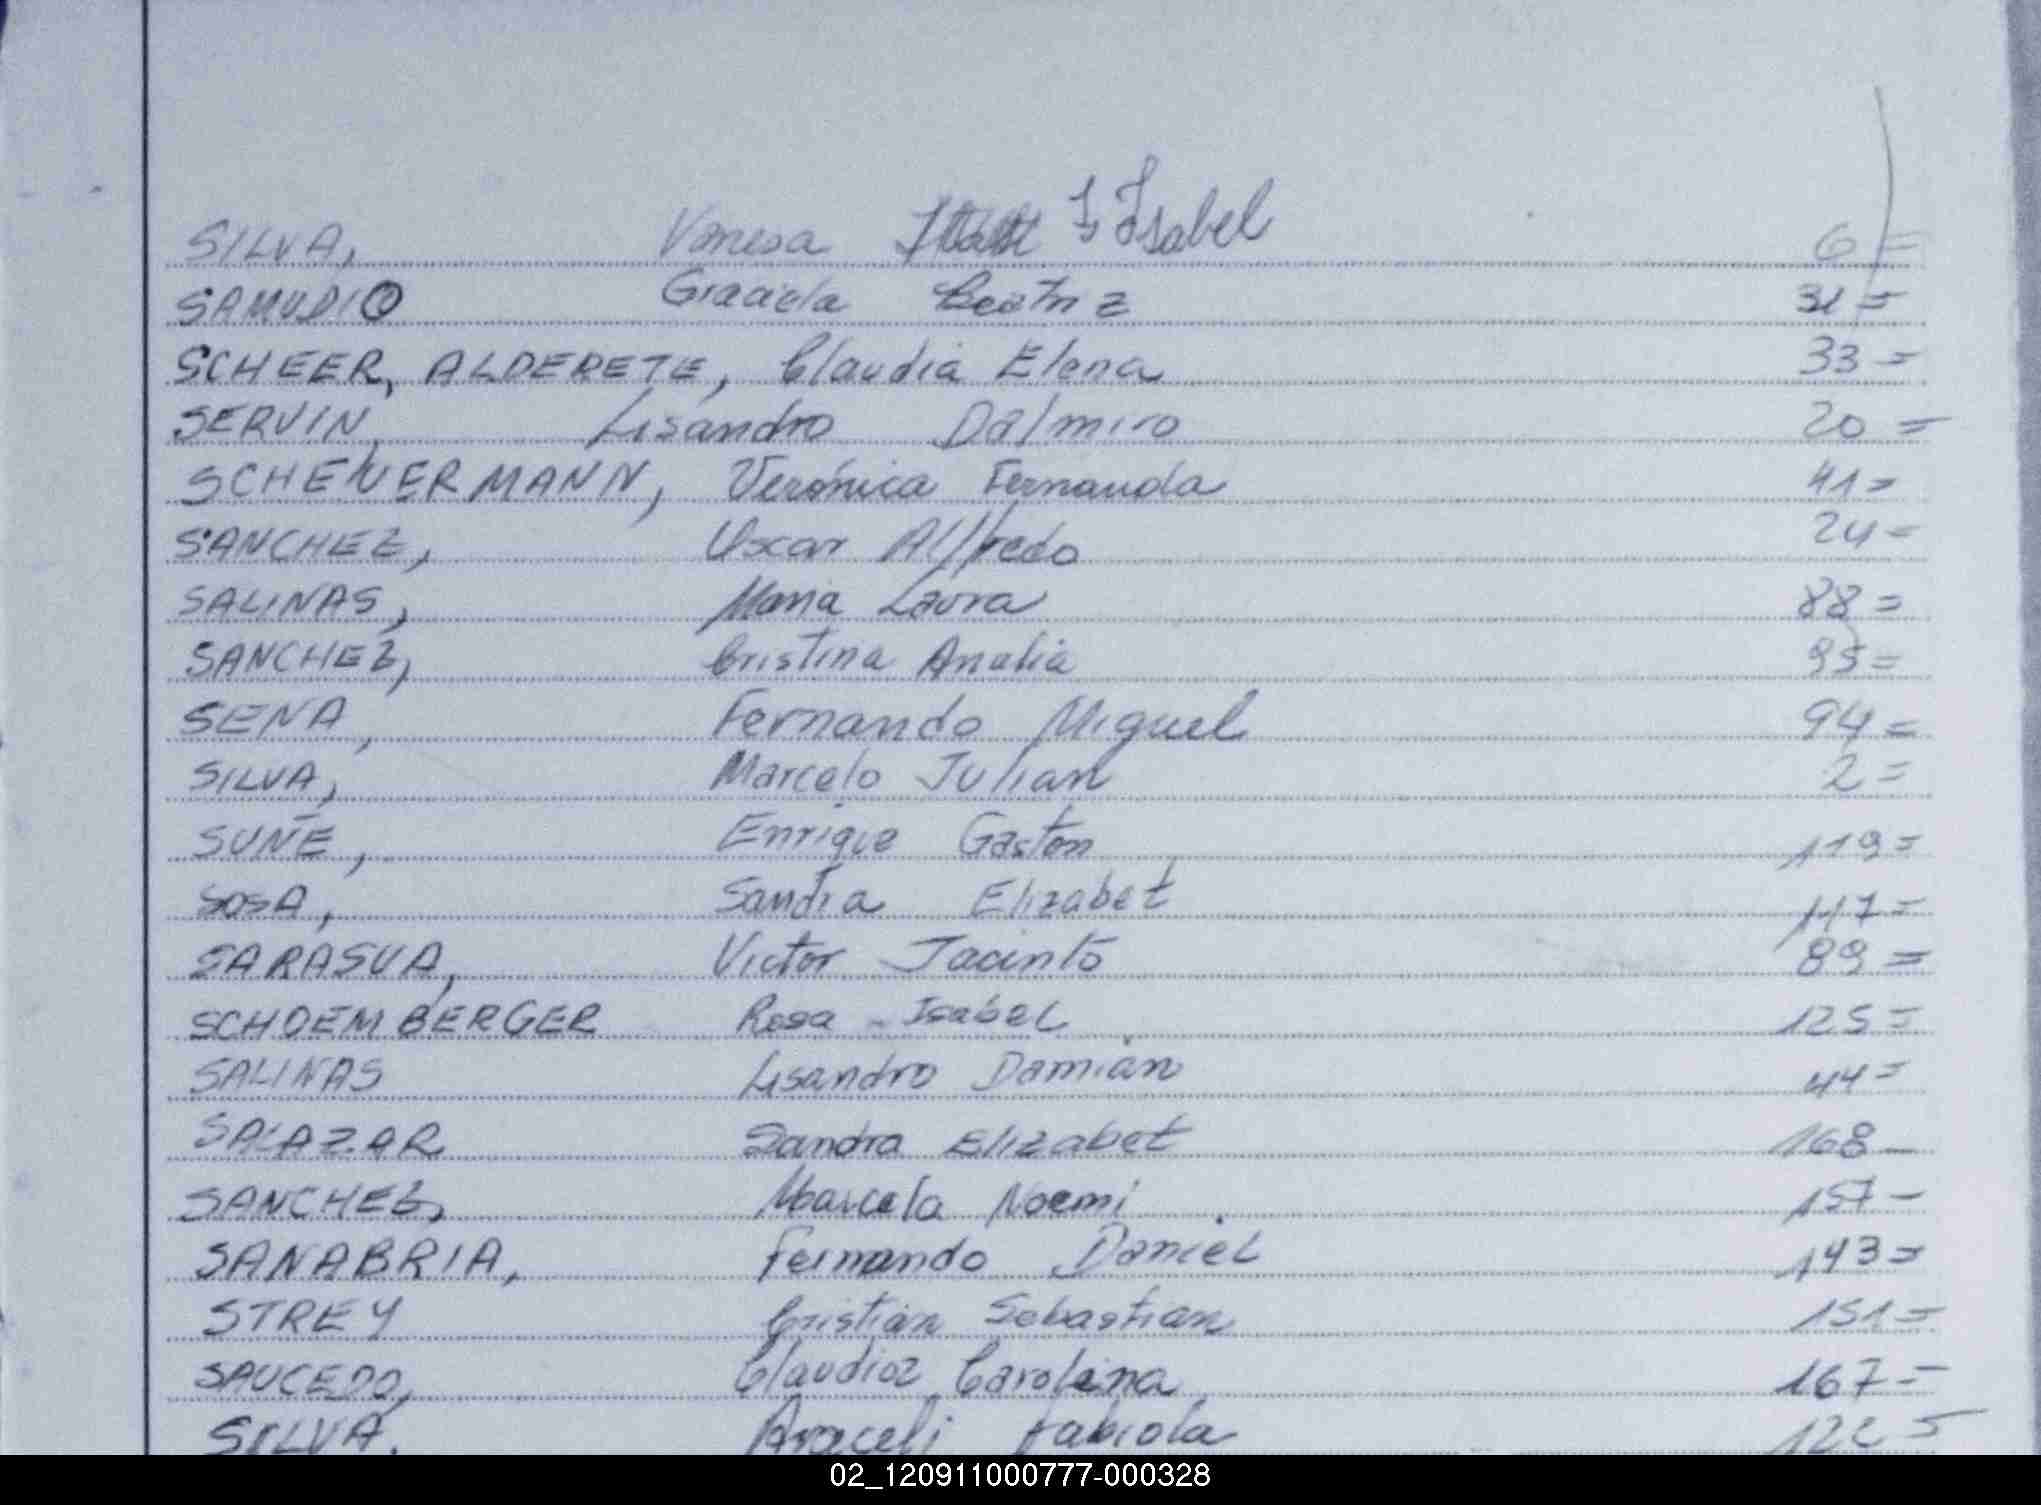 SILVA, Vanesa Isabel 6 =
SAMUDIO Graciela Beatriz 31 =
SCHEER, ALDERETE, Claudia Elena 33 =
SERVIN, Lisandro Dalmiro 20 =
SCHEUERMANN, Verónica Fernanda 41 =
SANCHEZ, Oscar Alfredo 24 =
SALINAS, Maria Laura 88 =
SANCHEZ, Cristina Analia 95 =
SENA, Fernando Miguel 94 =
SILVA, Marcelo Julian 2 =
SUÑE, Enrique Gastón 119 =
SOSA, Sandra Elizabet 147 =
SARASUA, Victor Jacinto 89 =
SCHOEMBERGER Rosa Isabel 125 =
SALINAS Lisandro Damián 44 =
SALAZAR Sandra Elizabet 168 -
SANCHEZ, Marcela Noemi 157 -
SANABRIA, Fernando Daniel 143 =
STREY Cristian Sebastian 151 =
SAUCEDO, Carolina 167 =
SILVA, Araceli Fabiola
02_120911000777-000328